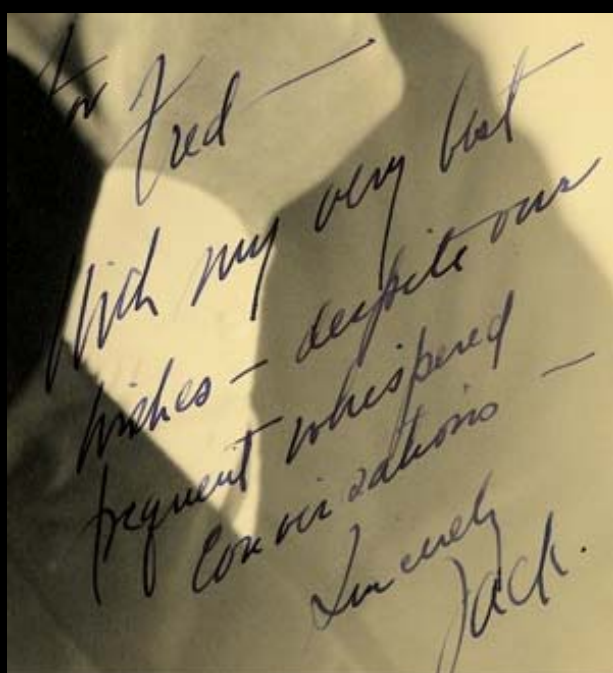 For Fred —
With my very best
wishes — despite our
frequent whispered
conversations —
Sincerely
Jack.